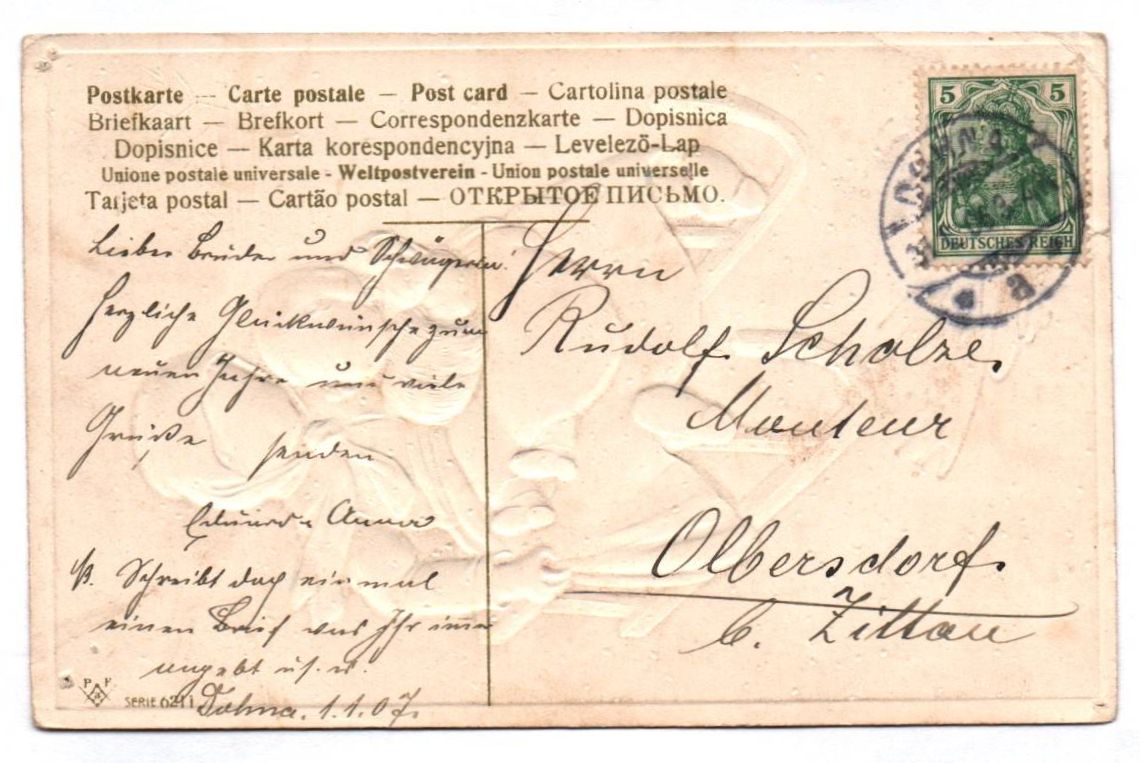 Postkarte — Carte postale — Post card — Cartolina postale
Briefkaart — Brefkort — Correspondenzkarte — Dopisnica
Dopisnice — Karta korespondencyjna — Levelezö-Lap
Unione postale universale - Weltpostverein - Union postale universelle
Tarjeta postal — Cartão postal — ОТКРЫТОЕ ПИСЬМО.
5 5
DEUTSCHES REICH
a
Lieber Bruder und Schwägerin!
Herzliche Glückwünsche zum
neuen Jahre und viele
Grüße senden
Eduard & Anna
Schreibt doch einmal
einen Brief was Ihr immer
angebt u.s.w.
Dohna. 1.1.07.
P F
SERIE 6211
Herrn
Rudolf Scholze,
Monteur
Olbersdorf.
b. Zittau